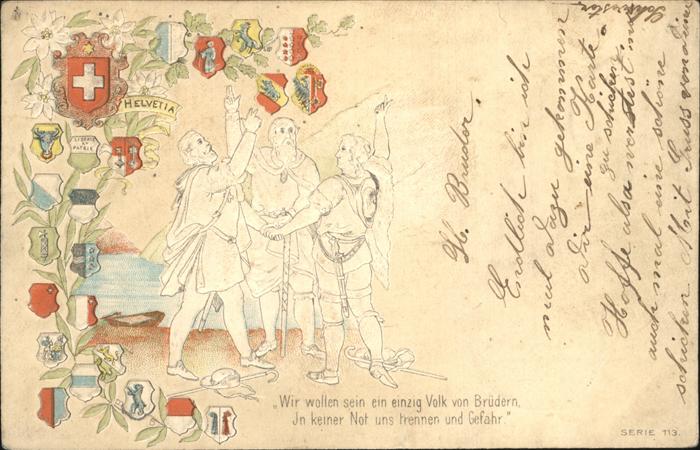 HELVETIA
LIBERTÉ
ET
PATRIE
„Wir wollen sein ein einzig Volk von Brüdern,
Jn keiner Not uns trennen und Gefahr."
SERIE 113.
Lb. Bruder.
Endlich bin ich
mal dazu gekommen
dir eine Karte
zu schicken.
Hoffe also
auch mal eine schöne
schicken Mit Gruss von deiner
Schwester